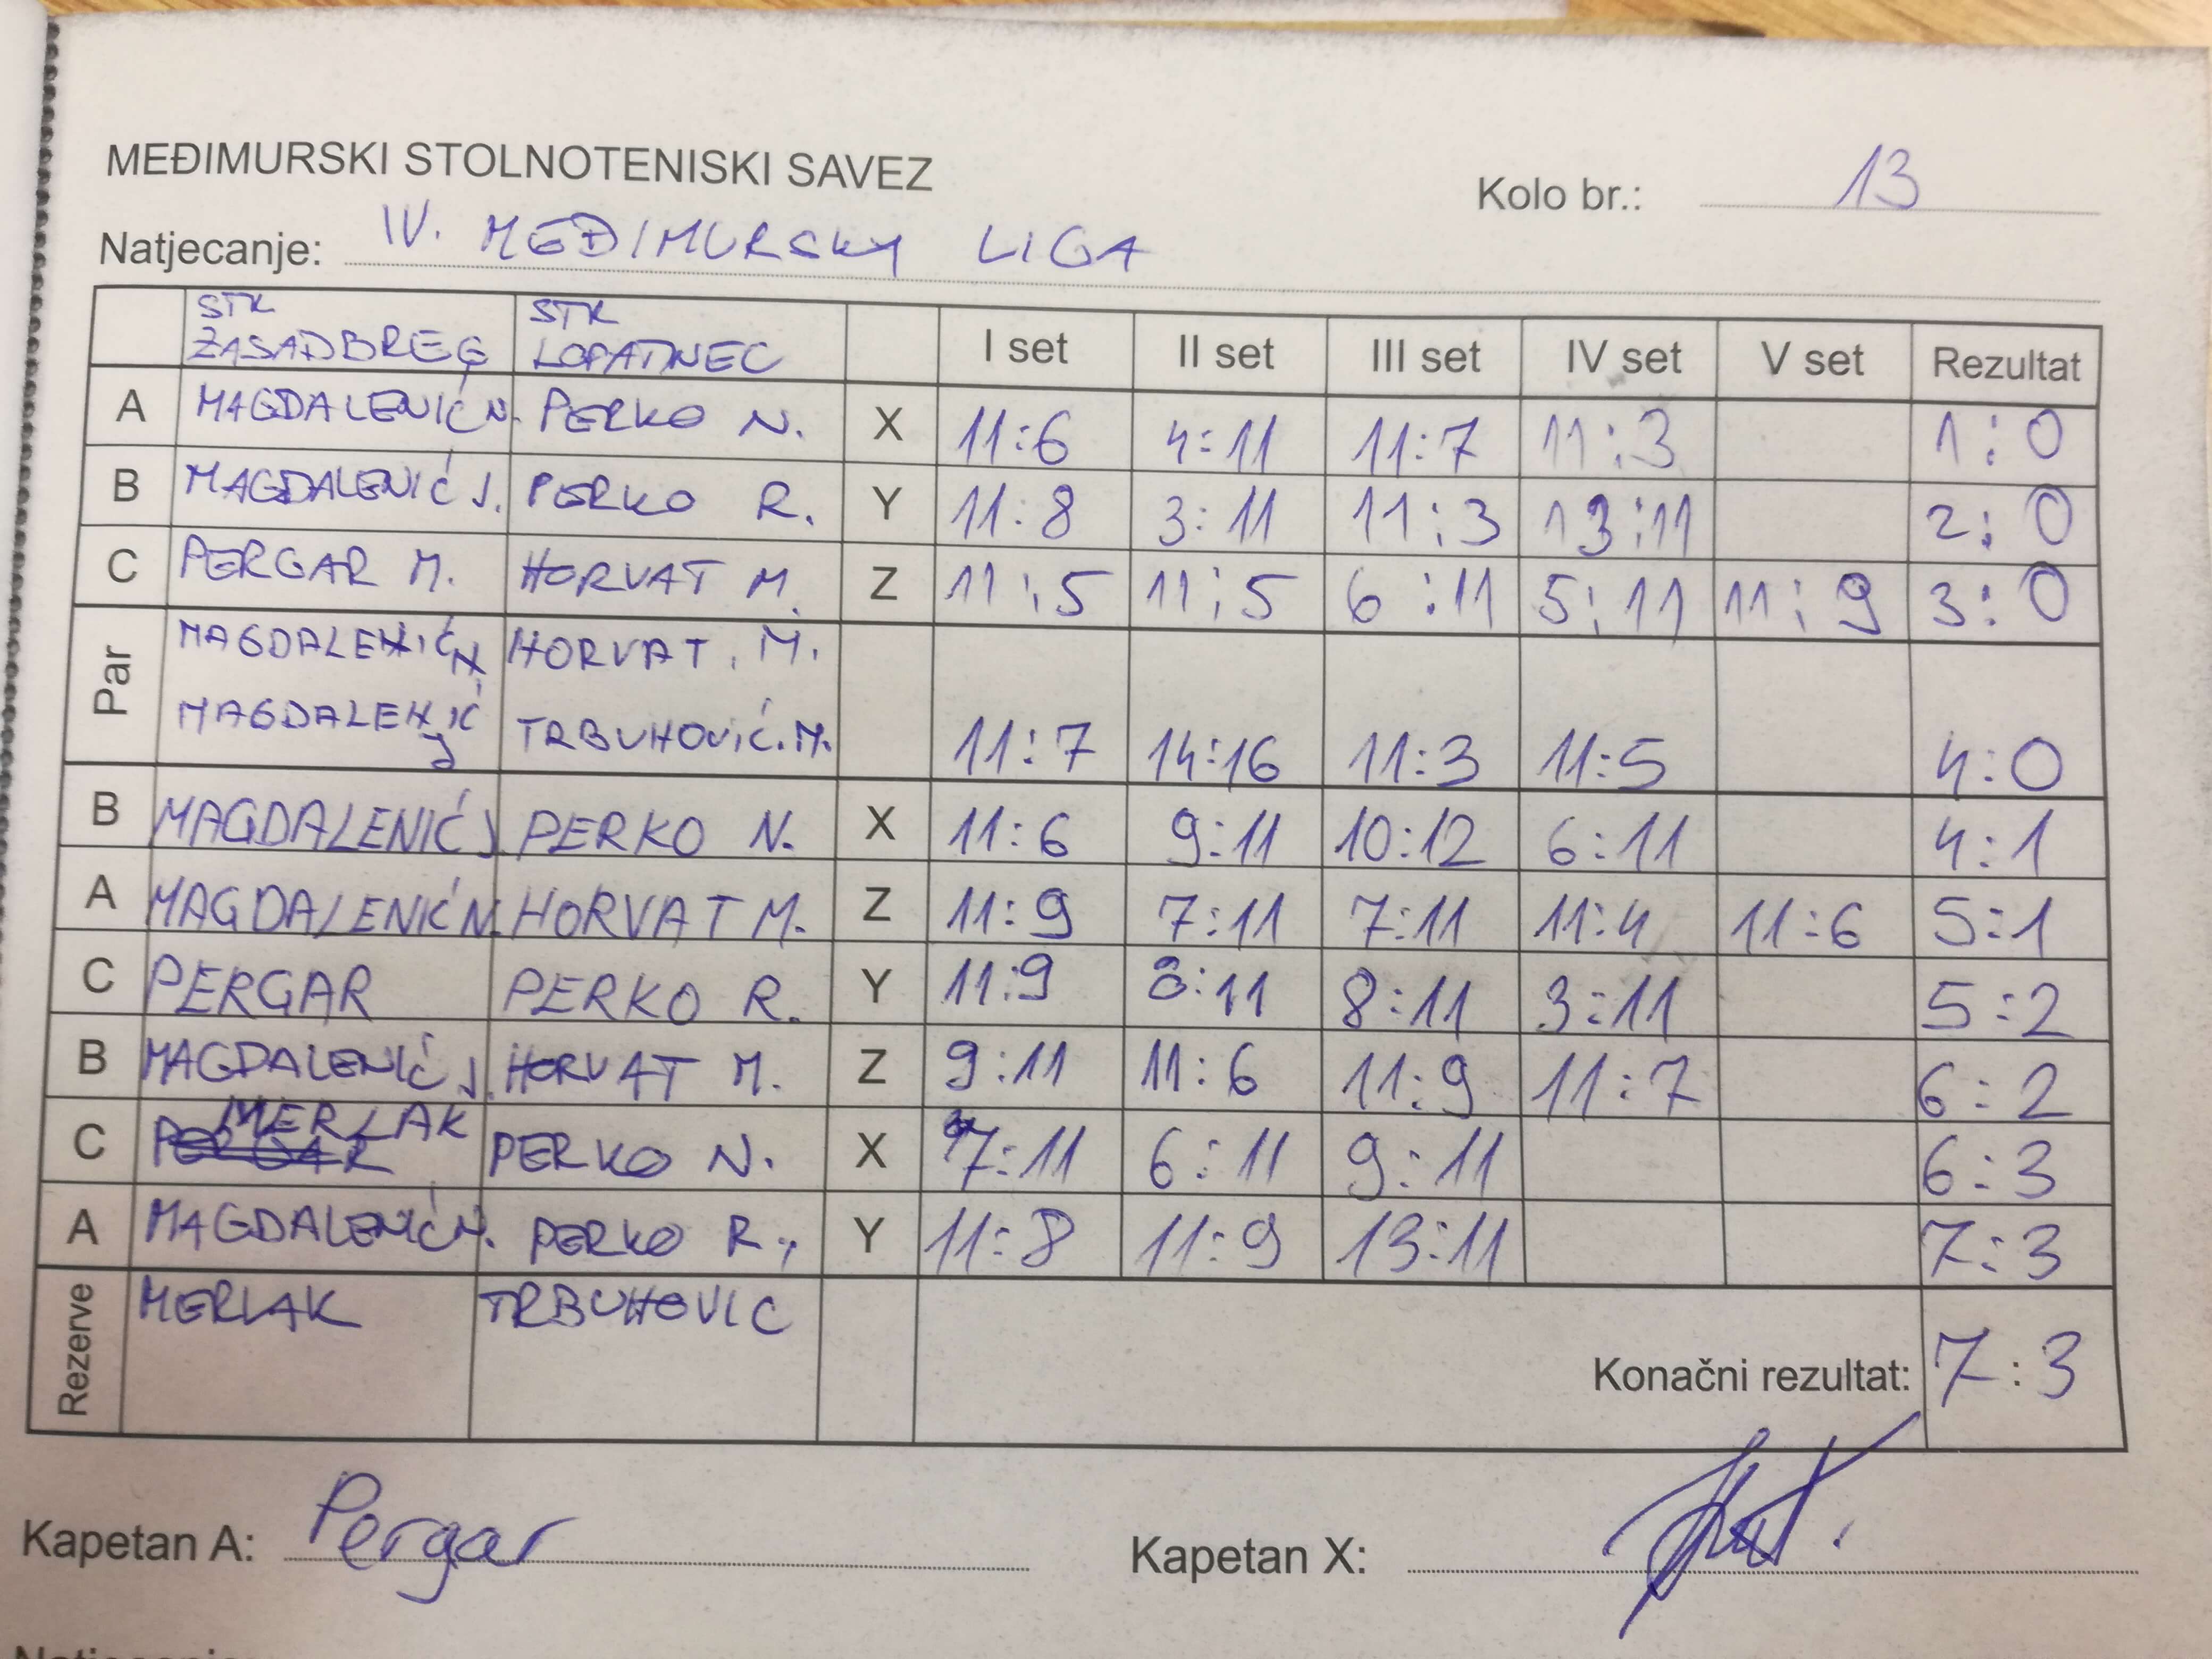 MEĐIMURSKI STOLNOTENISKI SAVEZ
Kolo br.: 13
Natjecanje: IV. MEĐIMURSKA LIGA
STK ZASADBREG STK LOPATINEC I set II set III set IV set V set Rezultat
A MAGDALENIĆ N. PERKO N. X 11:6 4:11 11:7 11:3 1:0
B MAGDALENIĆ J. PERKO R. Y 11:8 3:11 11:3 13:11 2:0
C PERGAR M. HORVAT M. Z 11:5 11:5 6:11 5:11 11:9 3:0
Par MAGDALENIĆ N HORVAT. M.
MAGDALENIĆ J TRBUHOVIĆ.M. 11:7 14:16 11:3 11:5 4:0
B MAGDALENIĆ J. PERKO N. X 11:6 9:11 10:12 6:11 4:1
A MAGDALENIĆ N. HORVAT M. Z 11:9 7:11 7:11 11:4 11:6 5:1
C PERGAR PERKO R. Y 11:9 8:11 8:11 3:11 5:2
B MAGDALENIĆ J. HORVAT M. Z 9:11 11:6 11:9 11:7 6:2
C MERLAK PERKO N. X 7:11 6:11 9:11 6:3
A MAGDALENIĆ N. PERKO R. Y 11:8 11:9 13:11 7:3
Rezerve MERLAK TRBUHOVIC
Konačni rezultat: 7:3
Kapetan A: Pergar
Kapetan X: